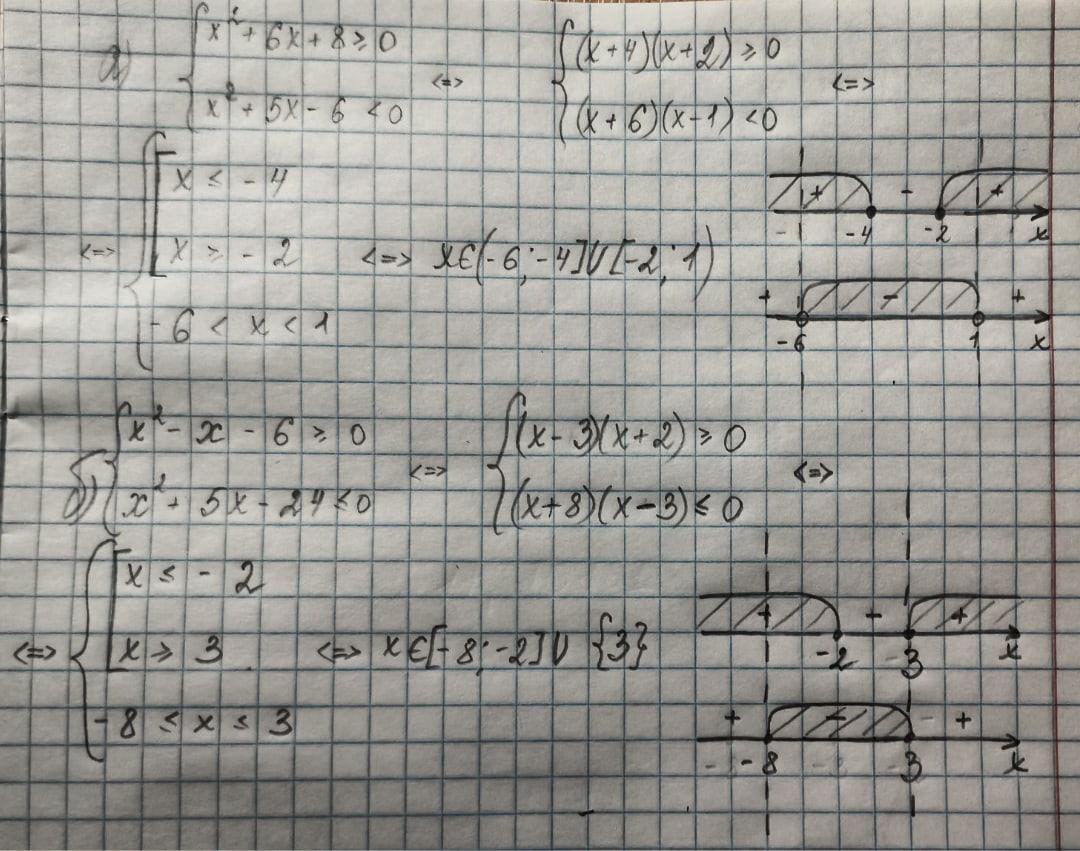 а) { x² + 6x + 8 ≥ 0
{ x² + 5x - 6 < 0
<=>
{ (x + 4)(x + 2) ≥ 0
{ (x + 6)(x - 1) < 0
<=>
<=> { [ x ≤ - 4
[ x ≥ - 2
- 6 < x < 1
<=> x∈(-6; -4]∪[-2; 1)
+ - +
-4 -2 x
+ - +
-6 1 x
б) { x² - x - 6 ≥ 0
{ x² + 5x - 24 ≤ 0
<=>
{ (x - 3)(x + 2) ≥ 0
{ (x + 8)(x - 3) ≤ 0
<=>
<=> { [ x ≤ - 2
[ x ≥ 3
- 8 ≤ x ≤ 3
<=> x∈[-8; -2]∪ {3}
+ - +
-2 3 x
+ - +
-8 3 x